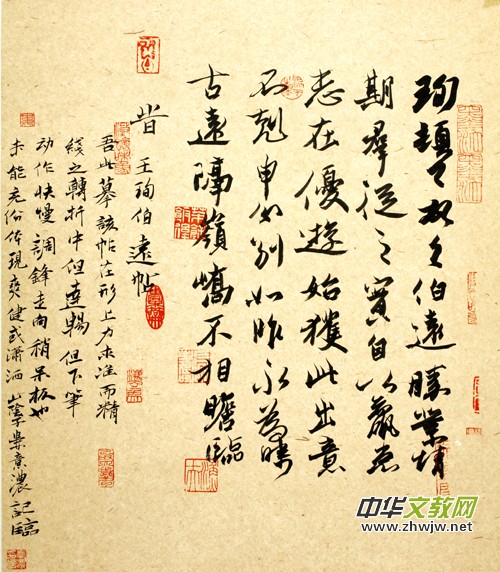 珣頓首頓首伯遠勝業情
期羣從之寶自以羸患
志在優遊始獲此出意
不剋申分別如昨永為疇
古遠隔嶺嶠不相瞻臨
晋 王珣伯遠帖
吾此摹該帖在形上力求准而精
线之轉折中但連暢但下筆
动作快慢調鋒走向稍呆板也
未能充份体現爽健或潇洒 山陰 意濃記臨
中华文教网
www.zhwjw.net